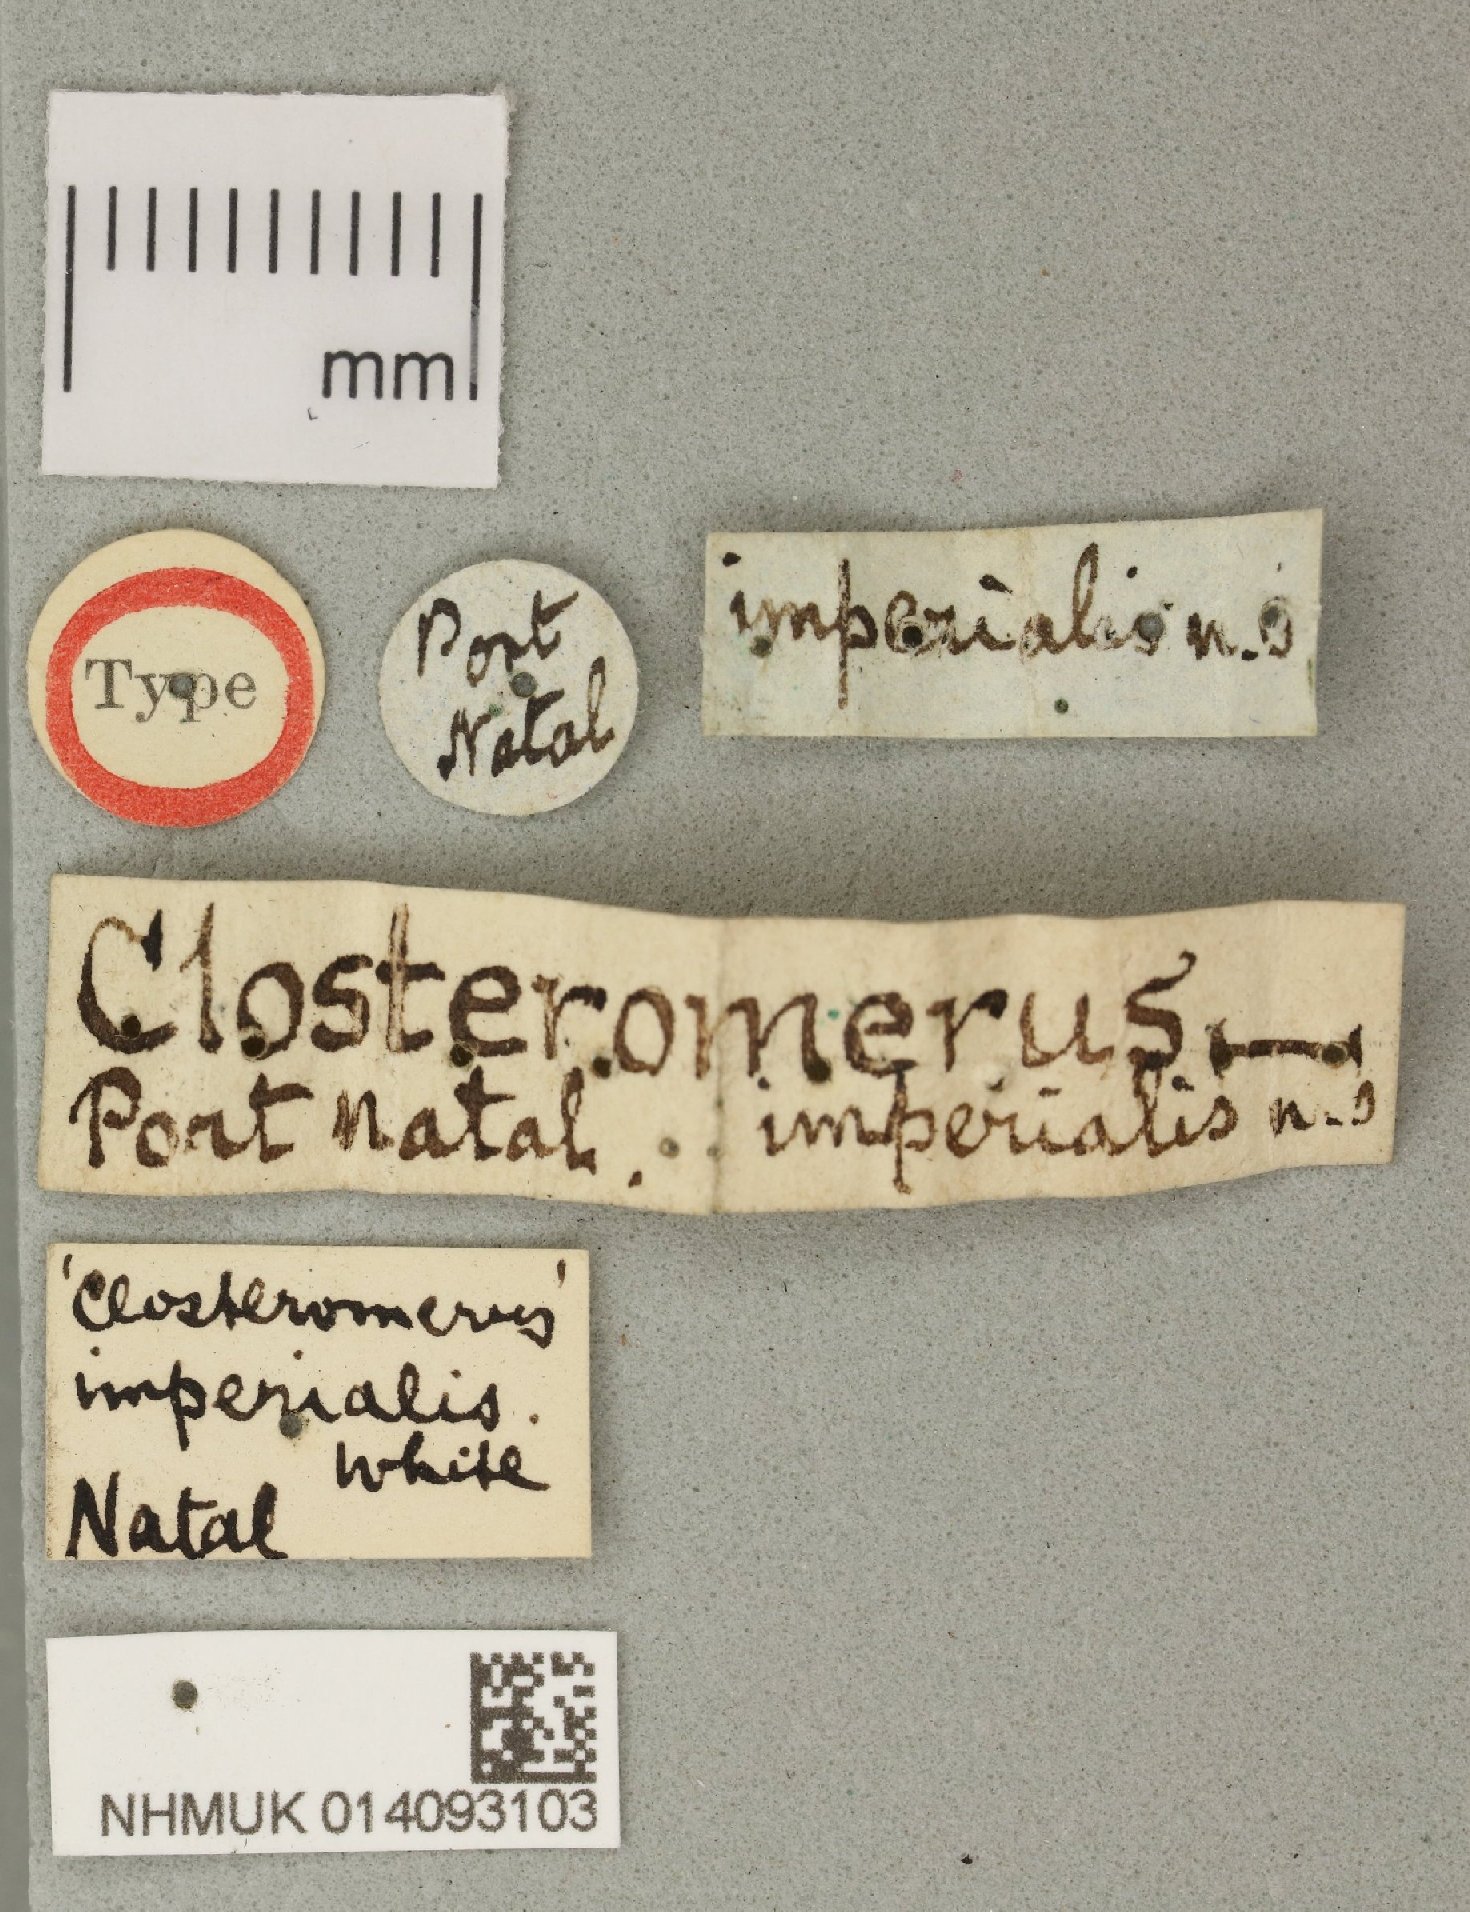 mm
Type
Port
Natal
imperialis n.s
Closteromerus
Port Natal. imperialis n.s
'Closteromerus'
imperialis.
White
Natal
NHMUK 014093103